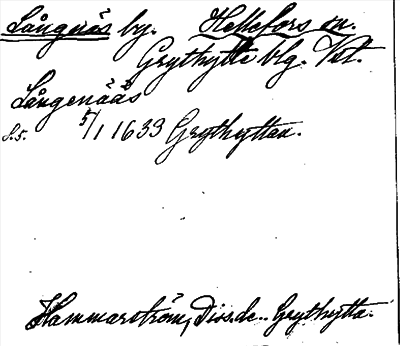 Långnäs by. Hellefors sn.
Grythytte blg. Vstl.
Långenääs
S. 5. 5/1 1639 Grythyttan.
Hammarström, Diss. de .. Grythytta.